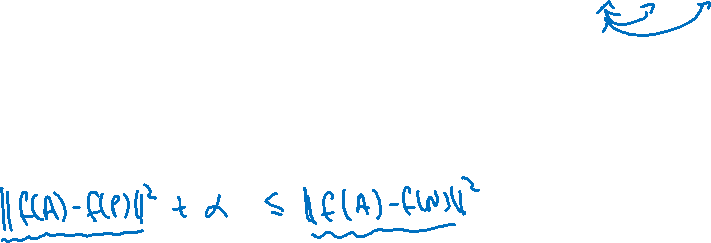 ||f(A)-f(P)||² + α ≤ ||f(A)-f(N)||²